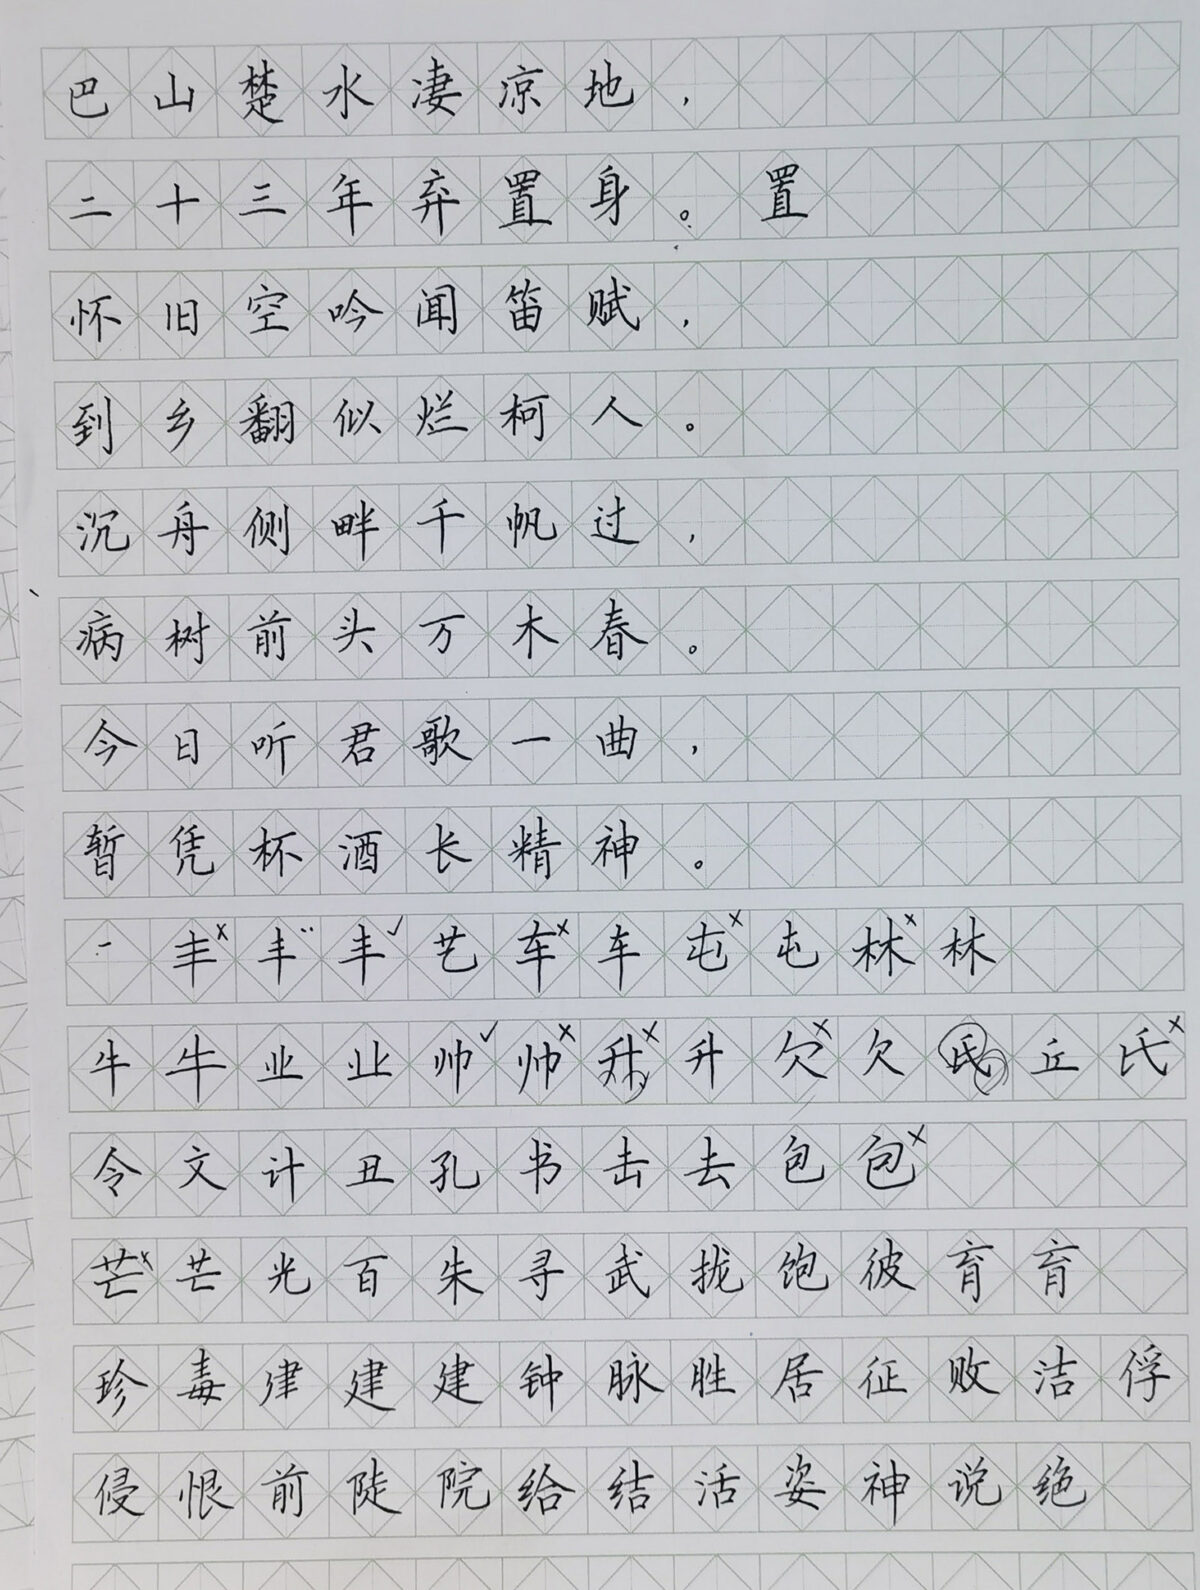 巴山楚水凄凉地，
二十三年弃置身。置
怀旧空吟闻笛赋，
到乡翻似烂柯人。
沉舟侧畔千帆过，
病树前头万木春。
今日听君歌一曲，
暂凭杯酒长精神。
一丰丰丰艺车车屯屯林林
牛牛业业帅帅升升欠欠氏丘氏
令文计丑孔书击去包包
芒芒光百朱寻武拢饱彼育育
珍毒建建建钟脉胜居征败洁俘
侵恨前陡院给结活姿神说绝